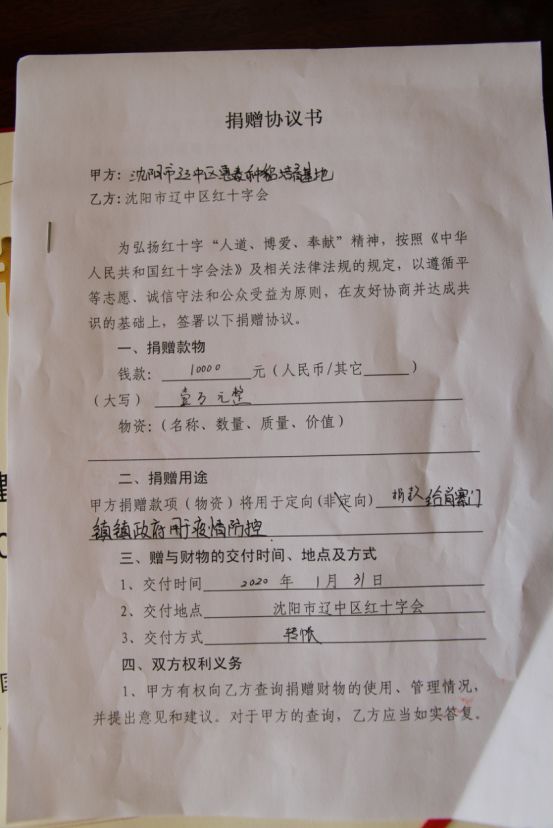 捐赠协议书
甲方:沈阳市辽中区惠农种猪培育基地
乙方:沈阳市辽中区红十字会
为弘扬红十字“人道、博爱、奉献”精神,按照《中华
人民共和国红十字会法》及相关法律法规的规定,以遵循平
等志愿、诚信守法和公众受益为原则,在友好协商并达成共
识的基础上,签署以下捐赠协议。
一、捐赠款物
钱款: 10000 元(人民币/其它 )
(大写) 壹万元整
物资:(名称、数量、质量、价值)
二、捐赠用途
甲方捐赠款项(物资)将用于定向(非定向) 捐款给肖寨门
镇镇政府用于疫情防控
三、赠与财物的交付时间、地点及方式
1、交付时间 2020 年 1月 31日
2、交付地点 沈阳市辽中区红十字会
3、交付方式 转帐
四、双方权利义务
1、甲方有权向乙方查询捐赠财物的使用、管理情况,
并提出意见和建议。对于甲方的查询,乙方应当如实答复。